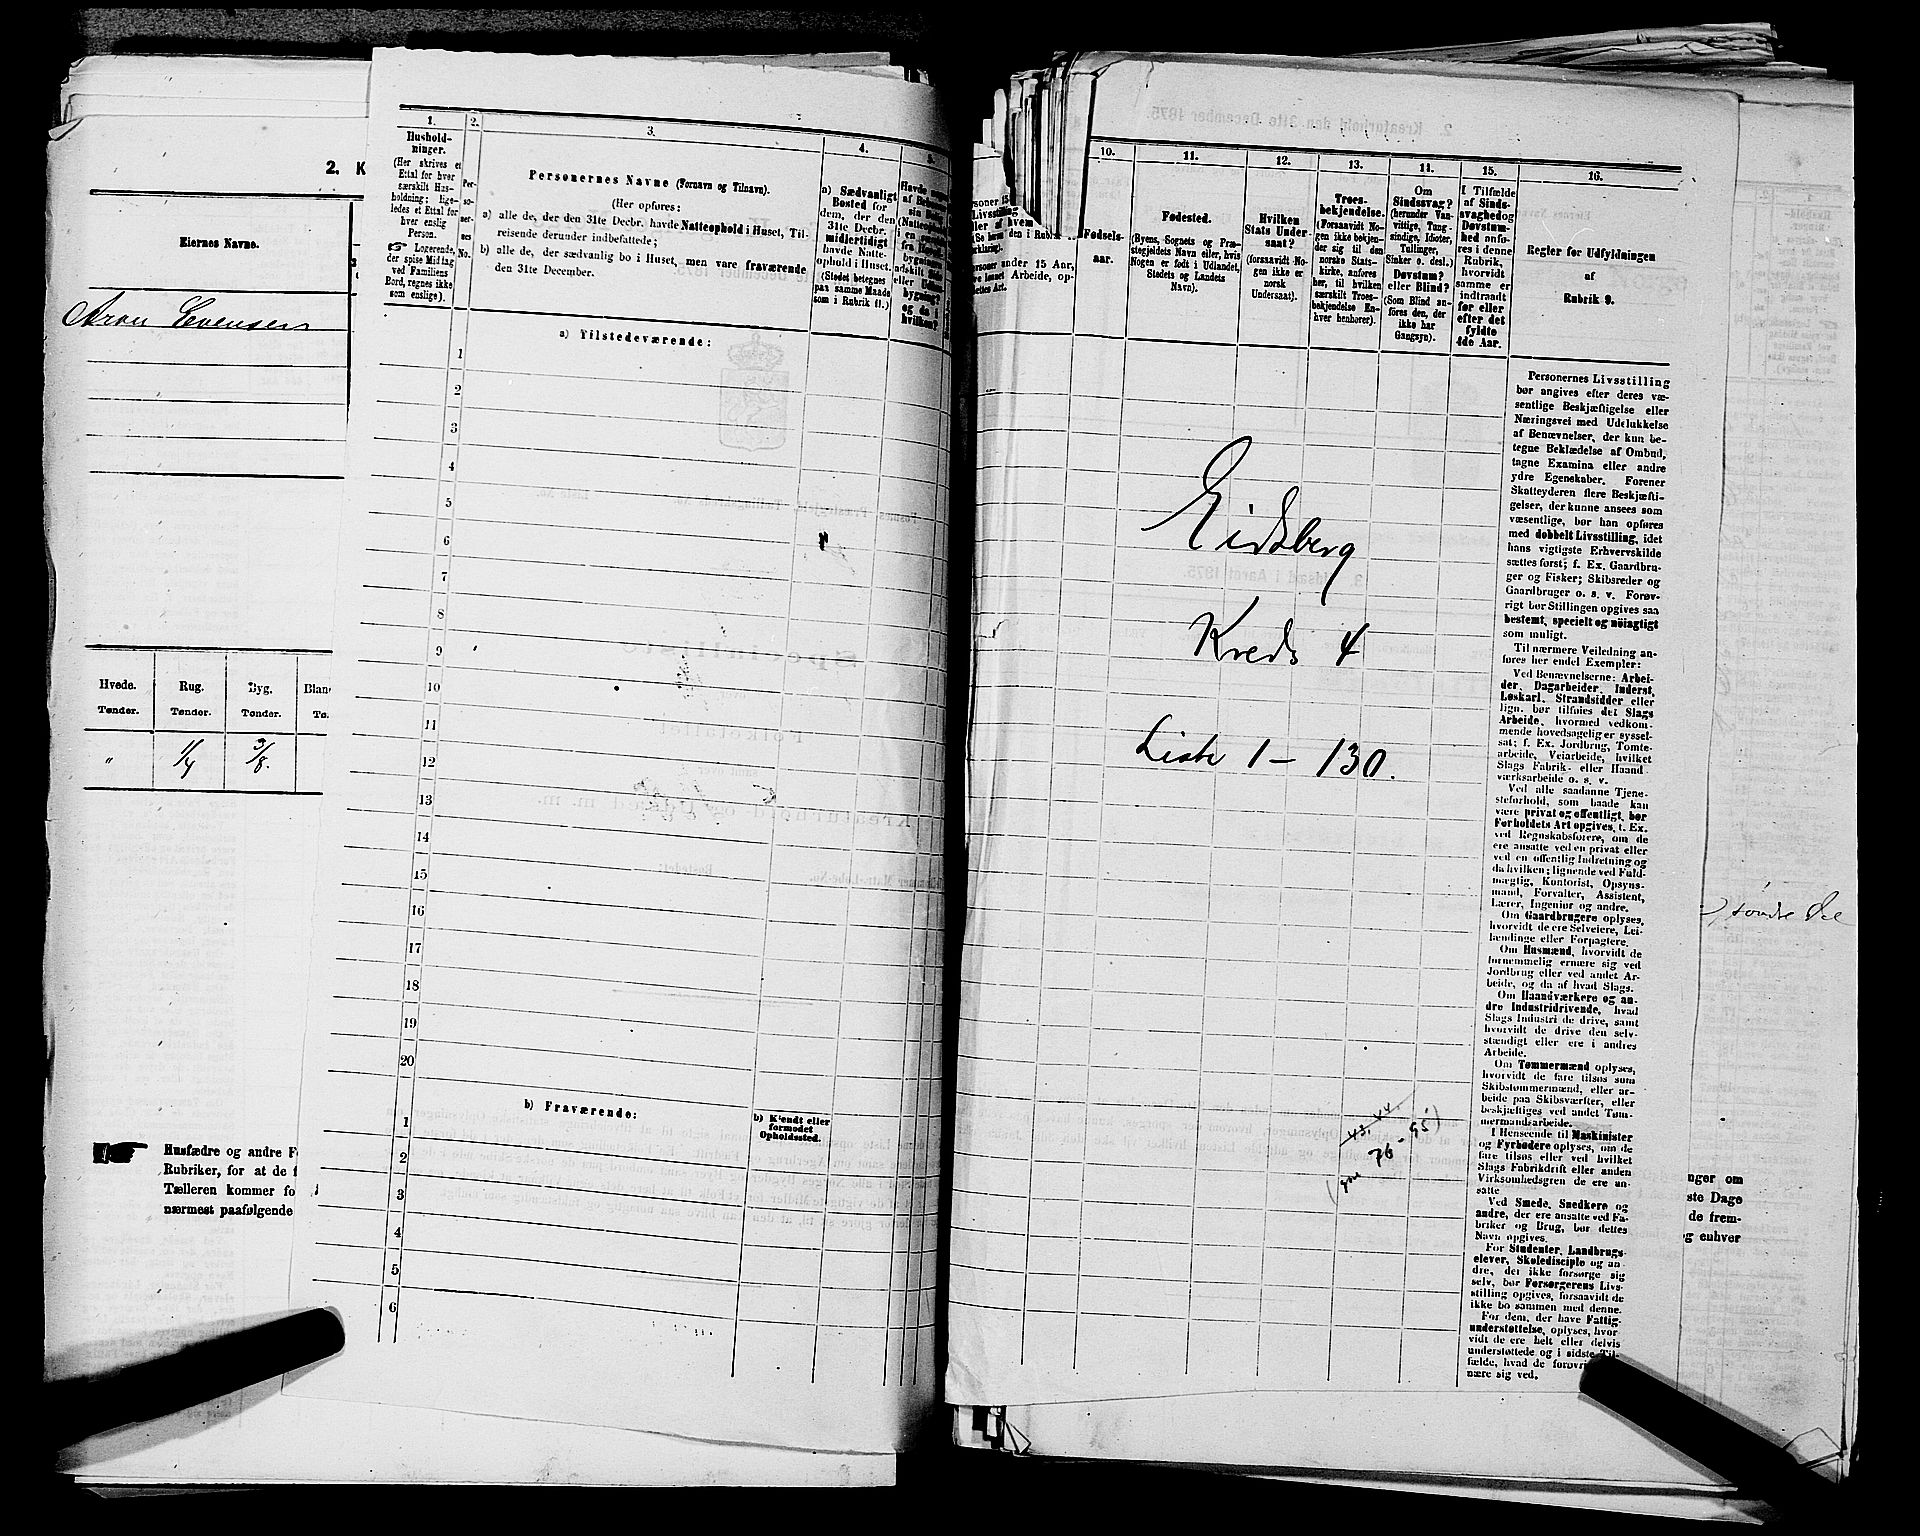 2. K
Eiernes Navne.
Aron Evensen
Hvede. Rug. Byg. Blan
Tønder. Tønder. Tønder. Tø.
" 1/4 3/8.
Husfædre og andre F
Rubriker, for at de f
Tælleren kommer fo
nærmest paafølgende
1. 2. 3. 4. 5.
Hushold-
ninger.
(Her skrives et
Ettal for hver
særskilt Hus-
holdning; lige-
ledes et Ettal for
hver enslig
Person.
Logerende,
der spise Middag
ved Familiens
Bord, regnes ikke
som enslige).
Per-
so-
ner-
nes
No.
Personernes Navne (Fornavn og Tilnavn).
(Her opføres:
a) alle de, der den 31te Decbr. havde Natteophold i Huset, Til-
reisende derunder indbefattede;
b) alle de, der sædvanlig bo i Huset, men vare fraværende
den 31te December.
a) Sædvanligt
Bosted for
dem, der den
31te Decbr.
midlertidigt
havde Natte-
ophold i Huset.
(Stedet betegnes
paa samme Maade
som i Rubrik 11.)
a) Tilstedeværende:
1
2
3
4
5
6
7
8
9
10
11
12
13
14
15
16
17
18
19
20
b) Fraværende:
b) Kjendt eller
formodet
Opholdssted.
1
2
3
4
5
6
10. 11. 12. 13. 14. 15. 16.
Fødsels-
aar.
Fødested.
(Byens, Sognets og Præ-
stegjeldets Navn eller, hvis
Nogen er født i Udlandet,
Stedets og Landets
Navn).
Hvilken
Stats Under-
saat?
(forsaavidt No-
gen ikke er
norsk
Undersaat).
Troes-
bekjendelse.
(Forsaavidt No-
gen ikke bekjen-
der sig til den
norske Stats-
kirke, anføres
her, til hvilken
særskilt Troes-
bekjendelse En-
hver henhører).
Om
Sindssvag?
(herunder Van-
vittige, Tung-
sindige, Idioter,
Tullinger,
Sinker o. desl.)
Døvstum?
eller Blind?
(Som Blind an-
føres den, der
ikke har
Gangsyn).
I Tilfælde
af Sinds-
svaghed og
Døvstum-
hed anfø-
res i denne
Rubrik,
hvorvidt
samme er
indtraadt
før eller
efter det
fyldte
4de Aar.
Regler for Udfyldningen
af
Rubrik 9.
Eidsberg
Kreds 4
Liste 1 - 130.
43. 44.
76 - 95)
Personernes Livsstilling
bør angives efter deres væ-
sentlige Beskjæftigelse eller
Næringsvei med Udelukkelse
af Benævnelser, der kun be-
tegne Beklædelse af Ombud,
tagne Examina eller andre
ydre Egenskaber. Forener
Skatteyderen flere Beskjæfti-
gelser, der kunne ansees som
væsentlige, bør han opføres
med dobbelt Livsstilling, idet
hans vigtigste Erhvervskilde
sættes først; f. Ex. Gaardbru-
ger og Fisker; Skibsreder og
Gaardbruger o. s. v. Forøv-
rigt bør Stillingen opgives saa
bestemt, specielt og nöiagtigt
som muligt.
Til nærmere Veiledning an-
føres her endel Exempler:
Ved Benævnelserne: Arbei-
der, Dagarbeider, Inderst,
Løskarl, Strandsidder eller
lign. bør tilføies det Slags
Arbeide, hvormed vedkom-
mende hovedsagelig er syssel-
sat; f. Ex. Jordbrug, Tomte-
arbeide, Veiarbeide, hvilket
Slags Fabrik- eller Haand
værksarbeide o. s. v.
Ved alle saadanne Tjene-
steforhold, som baade kan
være privat og offentligt, bør
Forholdets Art opgives, t. Ex.
ved Regnskabsførere, om de
ere ansatte ved en privat eller
ved en offentlig Indretning og
da hvilken; lignende ved Fuld-
mægtig, Kontorist, Opsyns-
mand, Forvalter, Assistent,
Lærer, Ingeniør og andre.
Om Gaardbrugere oplyses,
hvorvidt de ere Selveiere, Lei-
lændinge eller Forpagtere.
Om Husmænd, hvorvidt de
fornemmelig ernære sig ved
Jordbrug eller ved andet Ar-
beide, og da af hvad Slags.
Om Haandværkere og an-
dre Industridrivende, hvad
Slags Industri de drive, samt
hvorvidt de drive den selv-
stændigt eller ere i andres
Arbeide.
Om Tømmermænd oplyses,
hvorvidt de fare tilsøs som
Skibstømmermænd, eller ar-
beide paa Skibsværfter, eller
beskjæftiges ved andet Tøm-
mermandsarbeide.
I Henseende til Maskinister
og Fyrbødere oplyses, om de
fare tilsøs eller ved hvilket
Slags Fabrikdrift eller anden
Virksomhedsgren de ere an-
satte
Ved Smede, Snedkere og
andre, der ere ansatte ved Fa-
briker og Brug, bør dettes
Navn opgives.
For Studenter, Landbrugs-
elever, Skoledisciple og an-
dre, der ikke forsørge sig
selv, bør Forsørgerens Livs-
stilling opgives, forsaavidt de
ikke bo sammen med denne.
For dem, der have Fattig-
understøttelse, oplyses, hvor
vidt de ere helt eller delvis
understøttede og i sidste Til-
fælde, hvad de forøvri
nære sig ved.
nger om
ste Dage
de frem-
g enhver